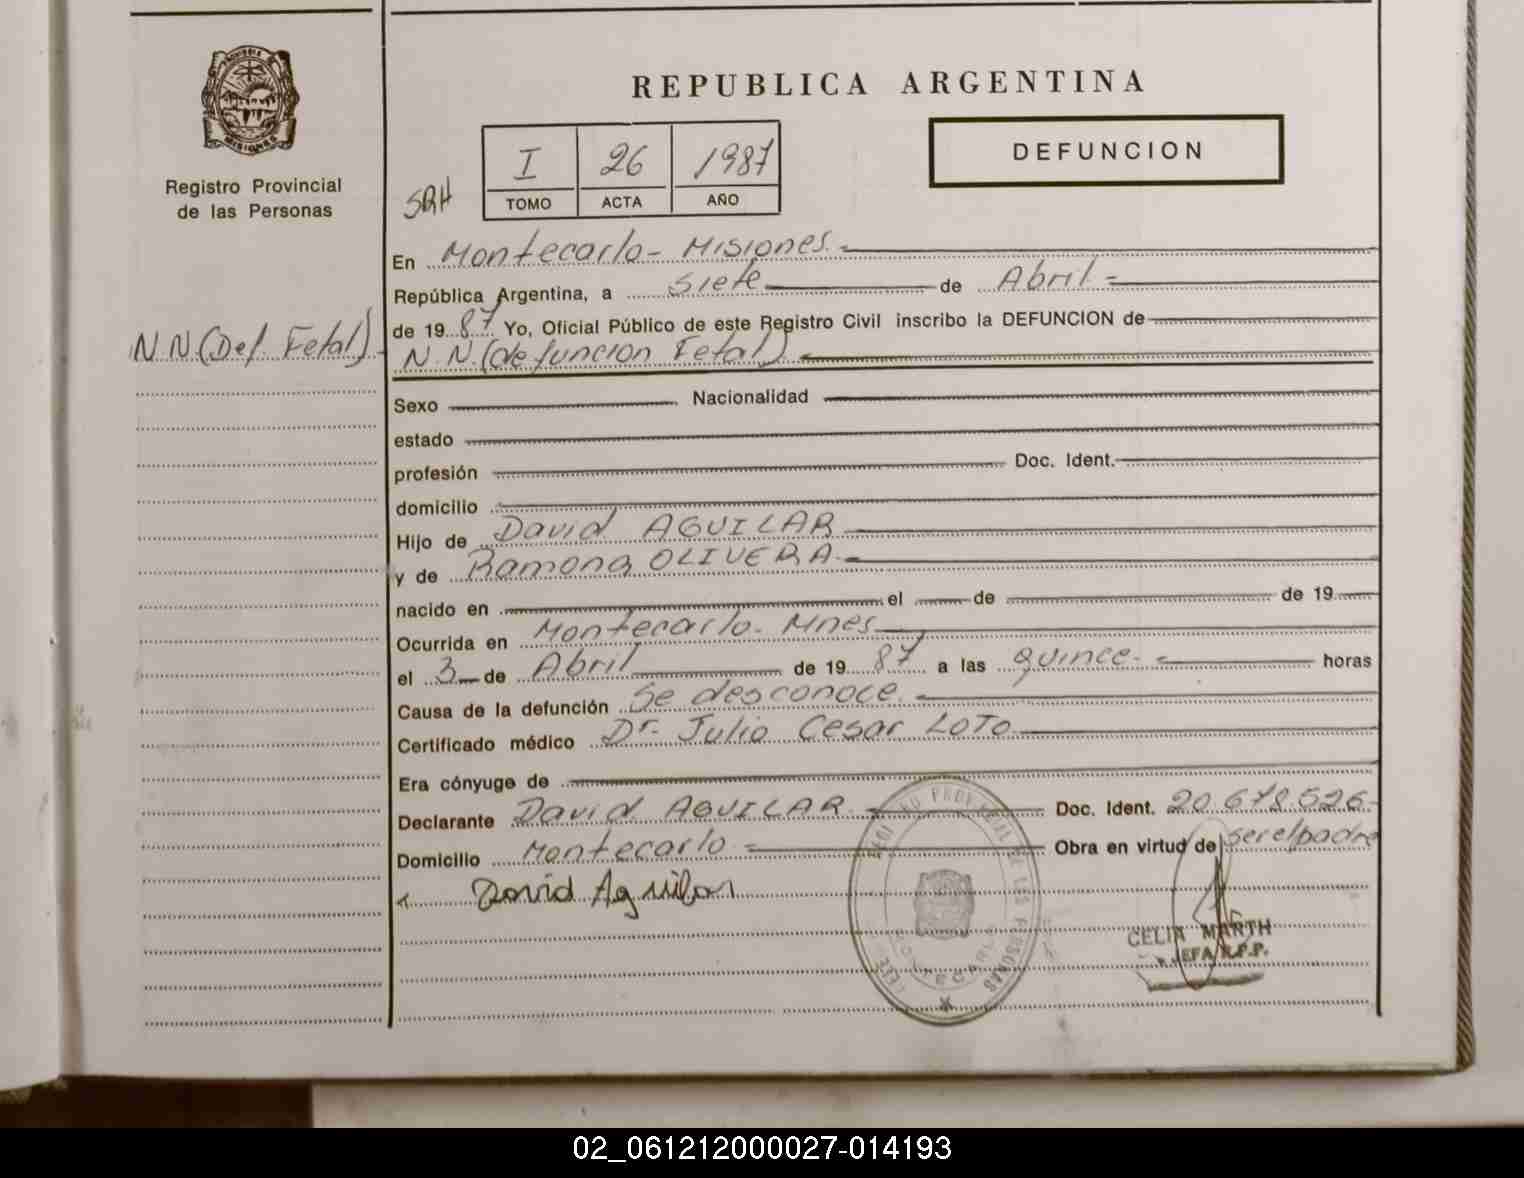 PROVINCIA DE
MISIONES
Registro Provincial
de las Personas
N N (Def. Fetal)
REPUBLICA ARGENTINA
DEFUNCION
SRH
I 26 1987
TOMO ACTA AÑO
En Montecarlo - Misiones.
República Argentina, a siete de Abril
de 19 87 Yo, Oficial Público de este Registro Civil inscribo la DEFUNCION de
N N. (defuncion Fetal)
Sexo Nacionalidad
estado
profesión Doc. Ident.
domicilio
Hijo de David AGUILAR
y de Ramona OLIVERA
nacido en el de de 19
Ocurrida en Montecarlo - Mnes
el 3 de Abril de 19 87 a las quince horas
Causa de la defunción Se desconoce.
Certificado médico Dr. Julio Cesar LOTO
Era cónyuge de
Declarante David AGUILAR Doc. Ident. 20.678.526
Domicilio Montecarlo Obra en virtud de ser el padre
David Aguilar
REGISTRO PROVINCIAL DE LAS PERSONAS
MONTECARLO
CELIA MARTH
JEFA R.P.P.
02_061212000027-014193